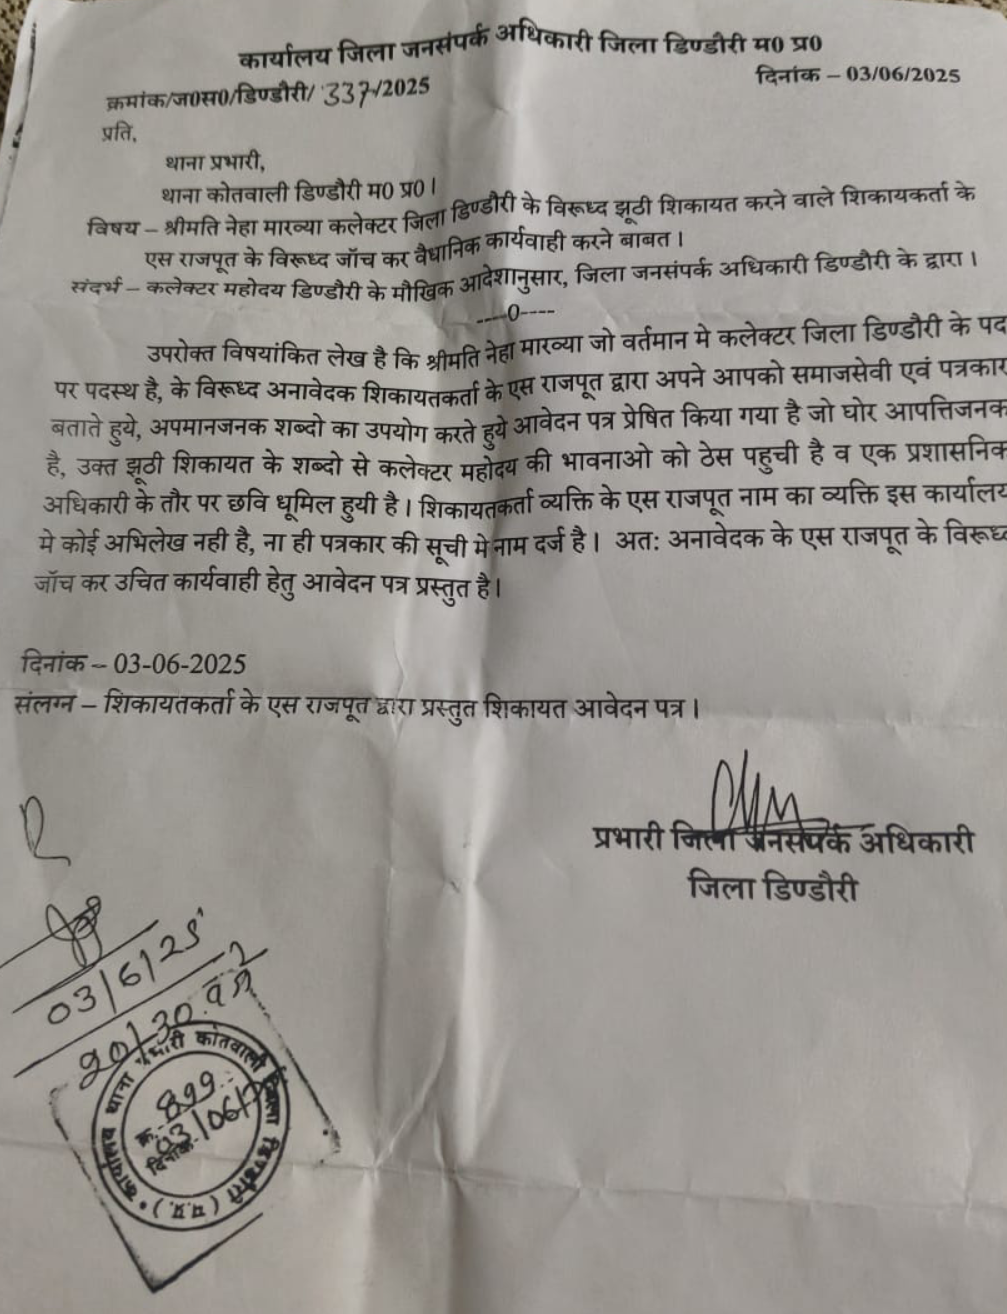 कार्यालय जिला जनसंपर्क अधिकारी जिला डिण्डौरी म0 प्र0
क्रमांक/ज0स0/डिण्डौरी/ 337/2025
दिनांक – 03/06/2025
प्रति,
थाना प्रभारी,
थाना कोतवाली डिण्डौरी म0 प्र0।
विषय – श्रीमति नेहा मारव्या कलेक्टर जिला डिण्डौरी के विरूध्द झूठी शिकायत करने वाले शिकायकर्ता के
एस राजपूत के विरूध्द जॉच कर वैधानिक कार्यवाही करने बाबत।
संदर्भ – कलेक्टर महोदय डिण्डौरी के मौखिक आदेशानुसार, जिला जनसंपर्क अधिकारी डिण्डौरी के द्वारा।
----0----
उपरोक्त विषयांकित लेख है कि श्रीमति नेहा मारव्या जो वर्तमान मे कलेक्टर जिला डिण्डौरी के पद
पर पदस्थ है, के विरूध्द अनावेदक शिकायतकर्ता के एस राजपूत द्वारा अपने आपको समाजसेवी एवं पत्रकार
बताते हुये, अपमानजनक शब्दो का उपयोग करते हुये आवेदन पत्र प्रेषित किया गया है जो घोर आपत्तिजनक
है, उक्त झूठी शिकायत के शब्दो से कलेक्टर महोदय की भावनाओ को ठेस पहुची है व एक प्रशासनिक
अधिकारी के तौर पर छवि धूमिल हुयी है। शिकायतकर्ता व्यक्ति के एस राजपूत नाम का व्यक्ति इस कार्यालय
मे कोई अभिलेख नही है, ना ही पत्रकार की सूची मे नाम दर्ज है। अतः अनावेदक के एस राजपूत के विरूध्द
जॉच कर उचित कार्यवाही हेतु आवेदन पत्र प्रस्तुत है।
दिनांक – 03-06-2025
संलग्न – शिकायतकर्ता के एस राजपूत द्वारा प्रस्तुत शिकायत आवेदन पत्र।
प्रभारी जिला जनसंपर्क अधिकारी
जिला डिण्डौरी
03/6/25
कार्यालय थाना प्रभारी कोतवाली जिला डिण्डौरी (म.प्र.)
क्र. 899
दिनांक 03/06/